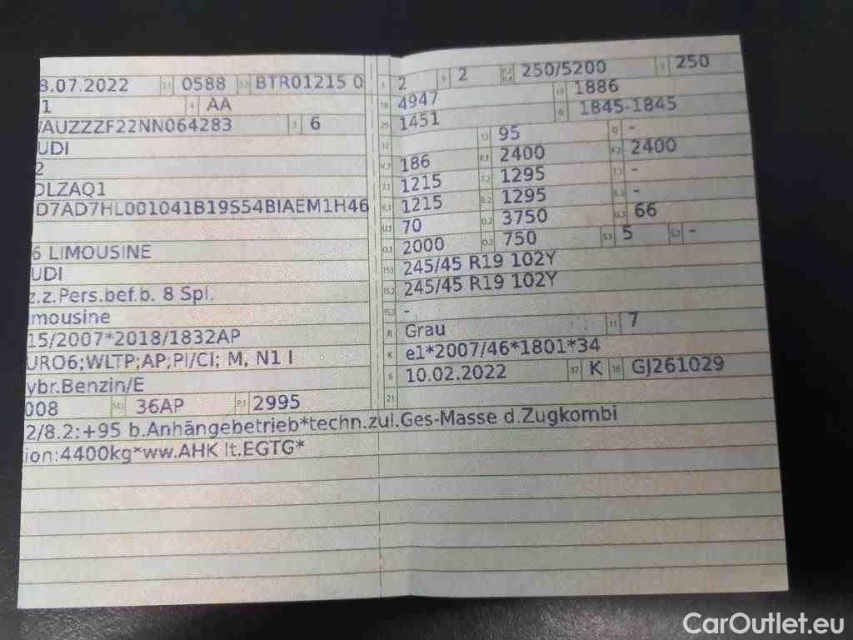 8.07.2022 0588 BTR01215 0
1 AA
/AUZZZF22NN064283 6
UDI
2
DLZAQ1
D7AD7HL001041B19S54BIAEM1H46
6 LIMOUSINE
UDI
z.z.Pers.bef.b. 8 Spl.
mousine
15/2007*2018/1832AP
URO6;WLTP;AP;PI/CI; M, N1 I
ybr.Benzin/E
008 36AP 2995
2/8.2:+95 b.Anhängebetrieb*techn.zul.Ges-Masse d.Zugkombi
ion:4400kg*ww.AHK lt.EGTG*
2 2 250/5200 250
4947 1886
1451 1845-1845
95 -
186 2400 2400
1215 1295 -
1215 1295 -
70 3750 66
2000 750 5 -
245/45 R19 102Y
245/45 R19 102Y
-
Grau 7
e1*2007/46*1801*34
10.02.2022 K GJ261029
CarOutlet.eu